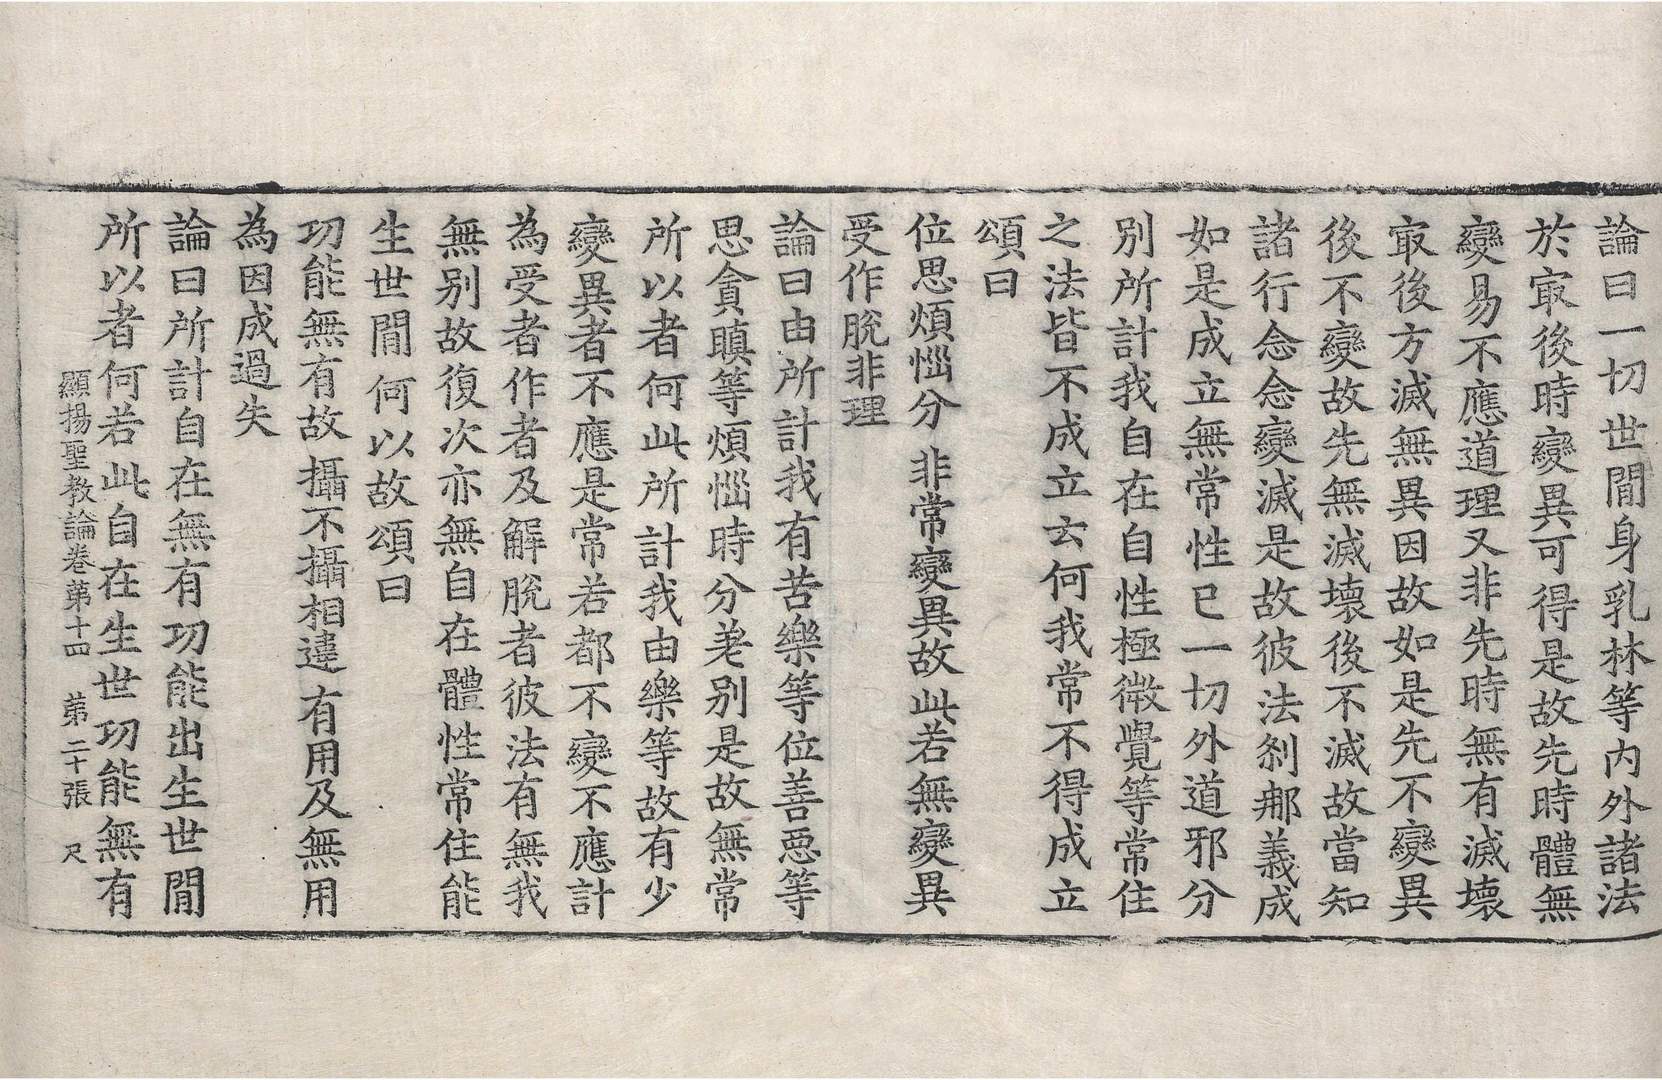 論曰一切世間身乳林等內外諸法
於㝡後時變異可得是故先時體無
變易不應道理又非先時無有滅壞
㝡後方滅無異因故如是先不變異
後不變故先無滅壞後不滅故當知
諸行念念變滅是故彼法剎那義成
如是成立無常性已一切外道邪分
別所計我自在自性極微覺等常住
之法皆不成立云何我常不得成立
頌曰
位思煩惱分　非常變異故此若無變異
受作脫非理
論曰由所計我有苦樂等位善惡等
思貪瞋等煩惱時分差別是故無常
所以者何此所計我由樂等故有少
變異者不應是常若都不變不應計
為受者作者及解脫者彼法有無我
無別故復次亦無自在體性常住能
生世間何以故頌曰
功能無有故　攝不攝相違　有用及無用
為因成過失
論曰所計自在無有功能出生世間
所以者何若此自在生世功能無有
顯揚聖教論卷第十四　第二十張　尺